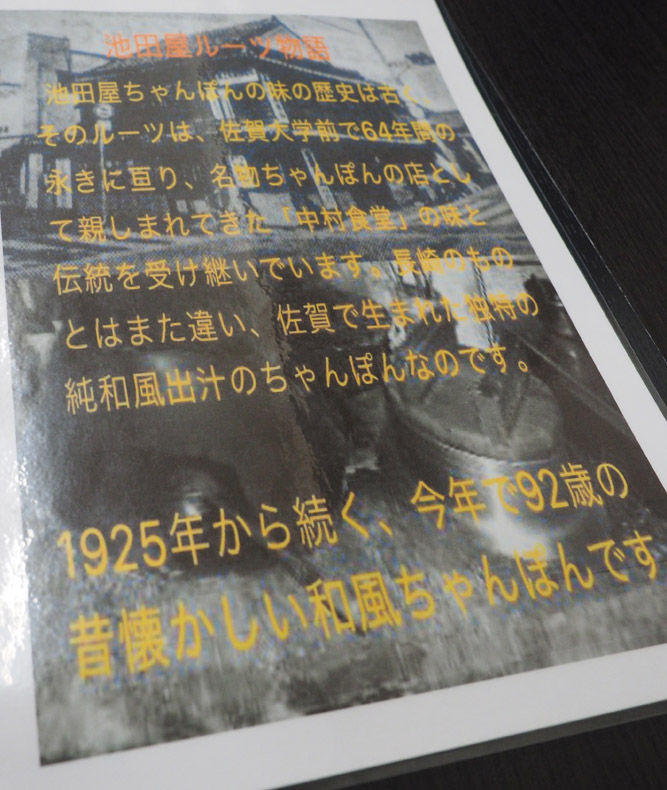 池田屋ルーツ物語
池田屋ちゃんぽんの味の歴史は古く、
そのルーツは、佐賀大学前で64年間の
永きに亘り、名物ちゃんぽんの店とし
て親しまれてきた「中村食堂」の味と
伝統を受け継いでいます。長崎のもの
とはまた違い、佐賀で生まれた独特の
純和風出汁のちゃんぽんなのです。
1925年から続く、今年で92歳の
昔懐かしい和風ちゃんぽんです